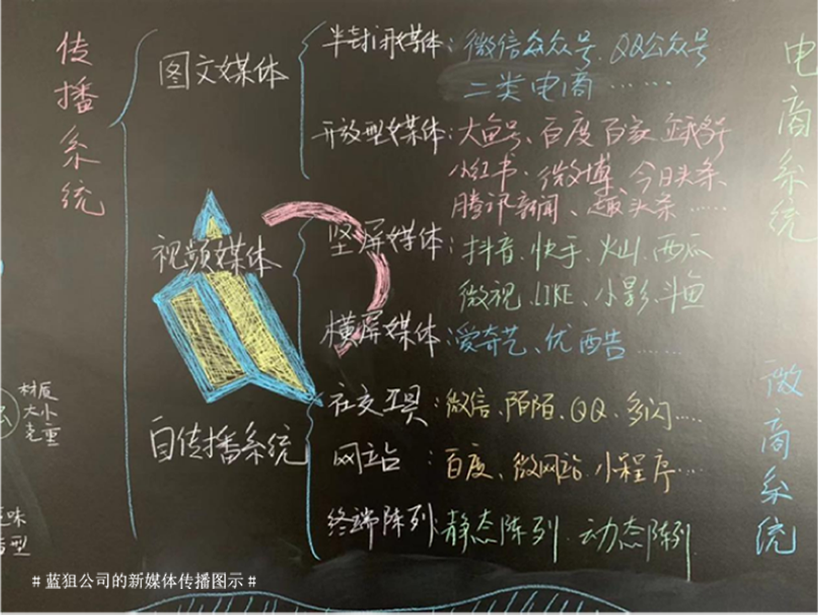 传播系统
图文媒体
半封闭媒体：微信公众号、QQ公众号
二类电商……
开放型媒体：大鱼号、百度百家
小红书、微博、今日头条、
腾讯新闻、趣头条……
视频媒体
坚屏媒体：抖音、快手、火山、西瓜
微视、LIKE、小影、斗鱼
横屏媒体：爱奇艺、优酷……
自传播系统
社交工具：微信、陌陌、QQ、多闪……
网站：百度、微网站、小程序……
终端阵列：静态阵列、动态阵列
电商系统
微商系统
材质
大小
克重
味
型
#蓝狙公司的新媒体传播图示#